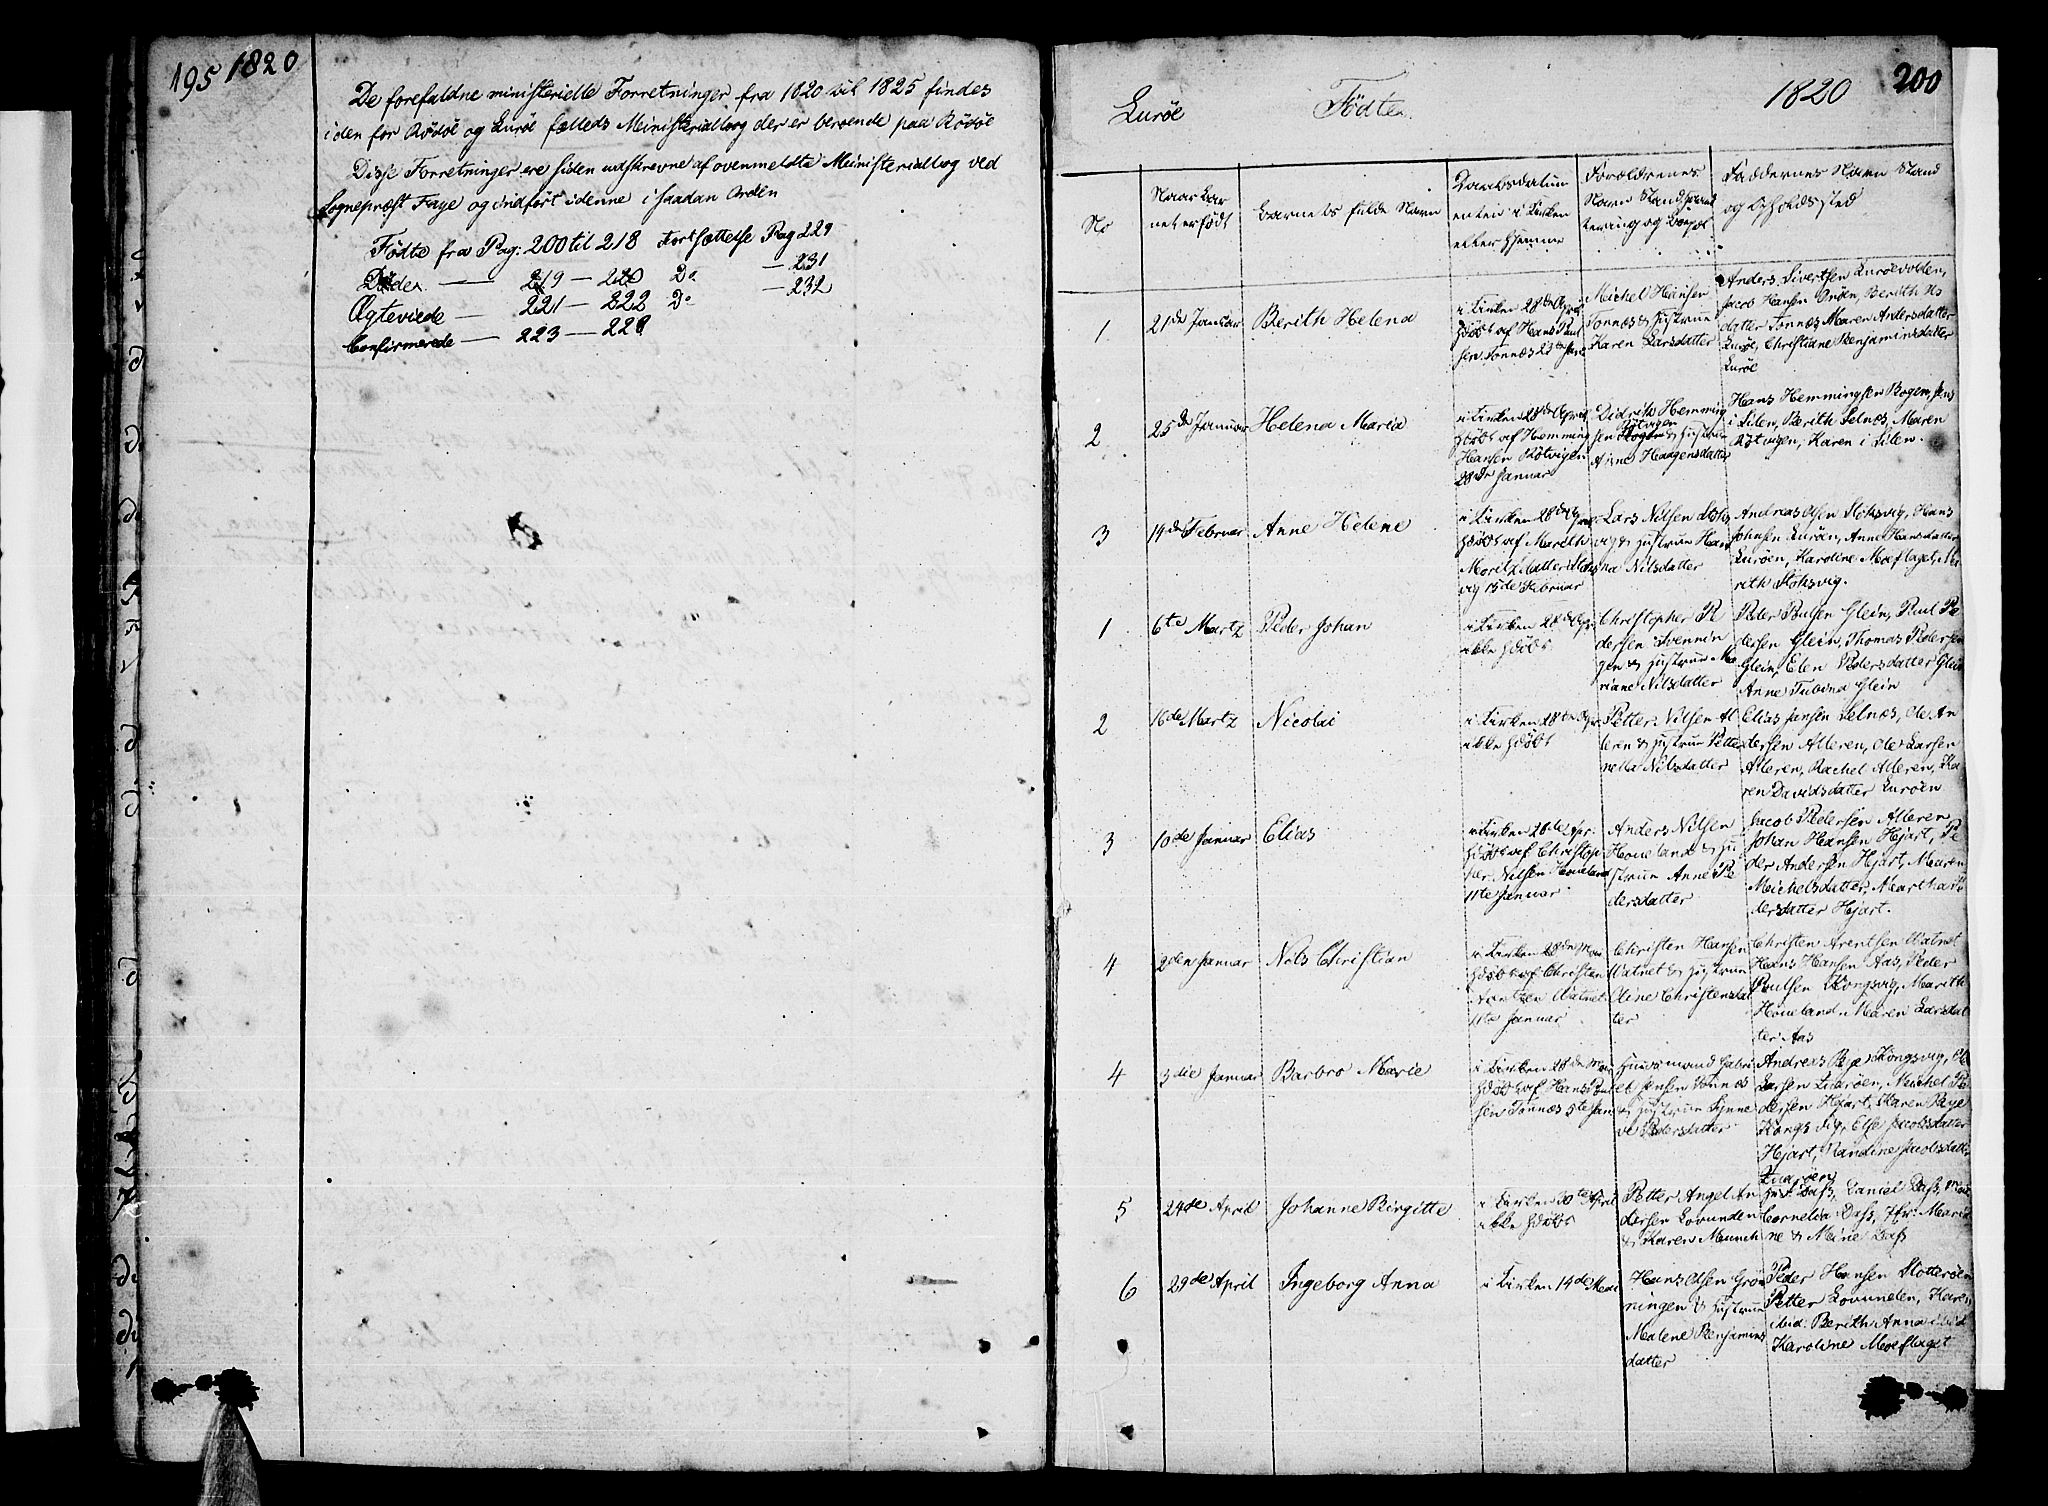 195 1820
De forefaldne ministerielle Forretninger fra 1820 til 1825 findes
i den for Rødøe og Lurøe fælleds Ministerialbog der er beroende paa Rødøe
Disse Forretninger ere siden udskrevne af ovenmeldte Ministerialbog ved
Sognepræst Faye og indført i denne i saadan Orden
Fødte fra Pag: 200 til 218 Fortsættelse Pag 229
Døde — 219 — 220 Do — 231
Ægteviede — 221 — 222 Do — 232
Confirmerede — 223 — 228
Lurøe Födte 1820 200
No
Naar Bar
net er født
Barnets fulde Navn
Daabsdatum
enten i Kirken
eller hjemme
Forældrenes
Navn Stand Haand
tering og Bopæl
Faddernes Navn Stand
og Opholdssted
1
21de Januar
Berith Helena
i Kirken 28de April
hdøbt af Hans Poul
sen Tonnes 23de Jan
Michel Hansen
Tonnes & Hustrue
Karen Larsdatter
Anders Sivertsen Lurøevolden,
Jacob Hansen Onöen, Berith Hs
datter Tonnes Maren Andersdatter
Lurøe, Christiane Benjaminsdatter
Lurøe
2
25de Januar
Helena Maria
i Kirken 28de April
hdøbt af Hemming
Hansen Qvotvigen
28de Januar
Didrich Hemming
sen & Hustrue
Anne Haagensdatter
Hans Hemmingsen Bogen, Jens
i Silen, Berith Selnæs, Maren
Karen i Silen.
3
14de Februar
Anne Helene
i Kirken 28de April
hdøbt af Marith
Moritzdatter Stoks
vig 15de Februar
Lars Nilsen Stoks
vig & Hustrue Han
na Nilsdatter
Andreas Olsen Stoksvig, Hans
Johnsen Lurøen, Anne Hansdatter
Lurøen, Karoline Moeflaget, Ma
rith Stoksvig.
1
6te Martz
Peder Johan
i Kirken 28de Apr
ikke hdøbt
Christopher Pe
dersen Svennin
gen & Hustrue Ma
riane Nilsdatter
Peder Poulsen Glein, Paul Pe
dersen Glein, Thomas Pedersen
Glein, Elen Pedersdatter Glein
Anne Tubina Glein
2
16de Martz
Nicolai
i Kirken 28de Apr
ikke hdøbt
Petter Nilsen Al
leren & Hustrue Petter
nella Nilsdatter
Elias Jansen Selnæs, Ole An
dersen Alleren, Ole Larsen
Alleren, Rachel Alleren, Ka
ren Davidsdatter Lurøen
3
10de Januar
Elias
i Kirken 28de Apr.
hdøbt af Christop
her Nilsen Houeland
11te Januar
Anders Nilsen
Houeland & Hu
strue Anne Pe
dersdatter
Jacob Pedersen Alleren
Johan Hansen Hjart, Pe
der Andersen Hjart, Maren
Michelsdatter, Martha Pe
dersdatter Hjart.
4
2den Januar
Nils Christian
i Kirken 28de Mar
hdøbt af Christen
Arntzen Vatnet
11te Januar
Christen Hansen
Vatnet & Hustrue
Oline Christensdat
ter
Christen Arentsen Vatnet
Hans Hansen Aas, Peder
Poulsen Kongsvig, Marith
Houeland, Maren Larsdat
ter Aas
4
3die Januar
Barbro Marie
i Kirken 28de Mar
hdøbt af Hans Poul
sen Tonnes 5te Jan
Huusmand Gabri
el Jensen Tonnes
& Hustrue Synne
ve Pedersdatter
Andreas Kongsvig, Ole
Larsen Livarøen, Michel Pe
dersen Hjart, Karen Paye
Kongsvig, Else Jacobsdatter
Hjart, Randine Jacobsdatter
5
24de April
Johanne Birgitte
i Kirken 30te April
ikke hdøbt
Petter Angel An
dersen Lovunden
& Karen Munch
Hr. P Dass, Daniel Dass, Mad
Cornelia Dass, Jfr: Mari
ne & Mine Dass
6
29de April
Ingeborg Anna
i Kirken 14de Mai
Hans Olsen Grön
ningen & Hustrue
Malene Benjamins
datter
Peder Hansen Slotterøen
Petter Lovunden, Karen
ibid: Berith Anna ibid
Karoline Moeflaget